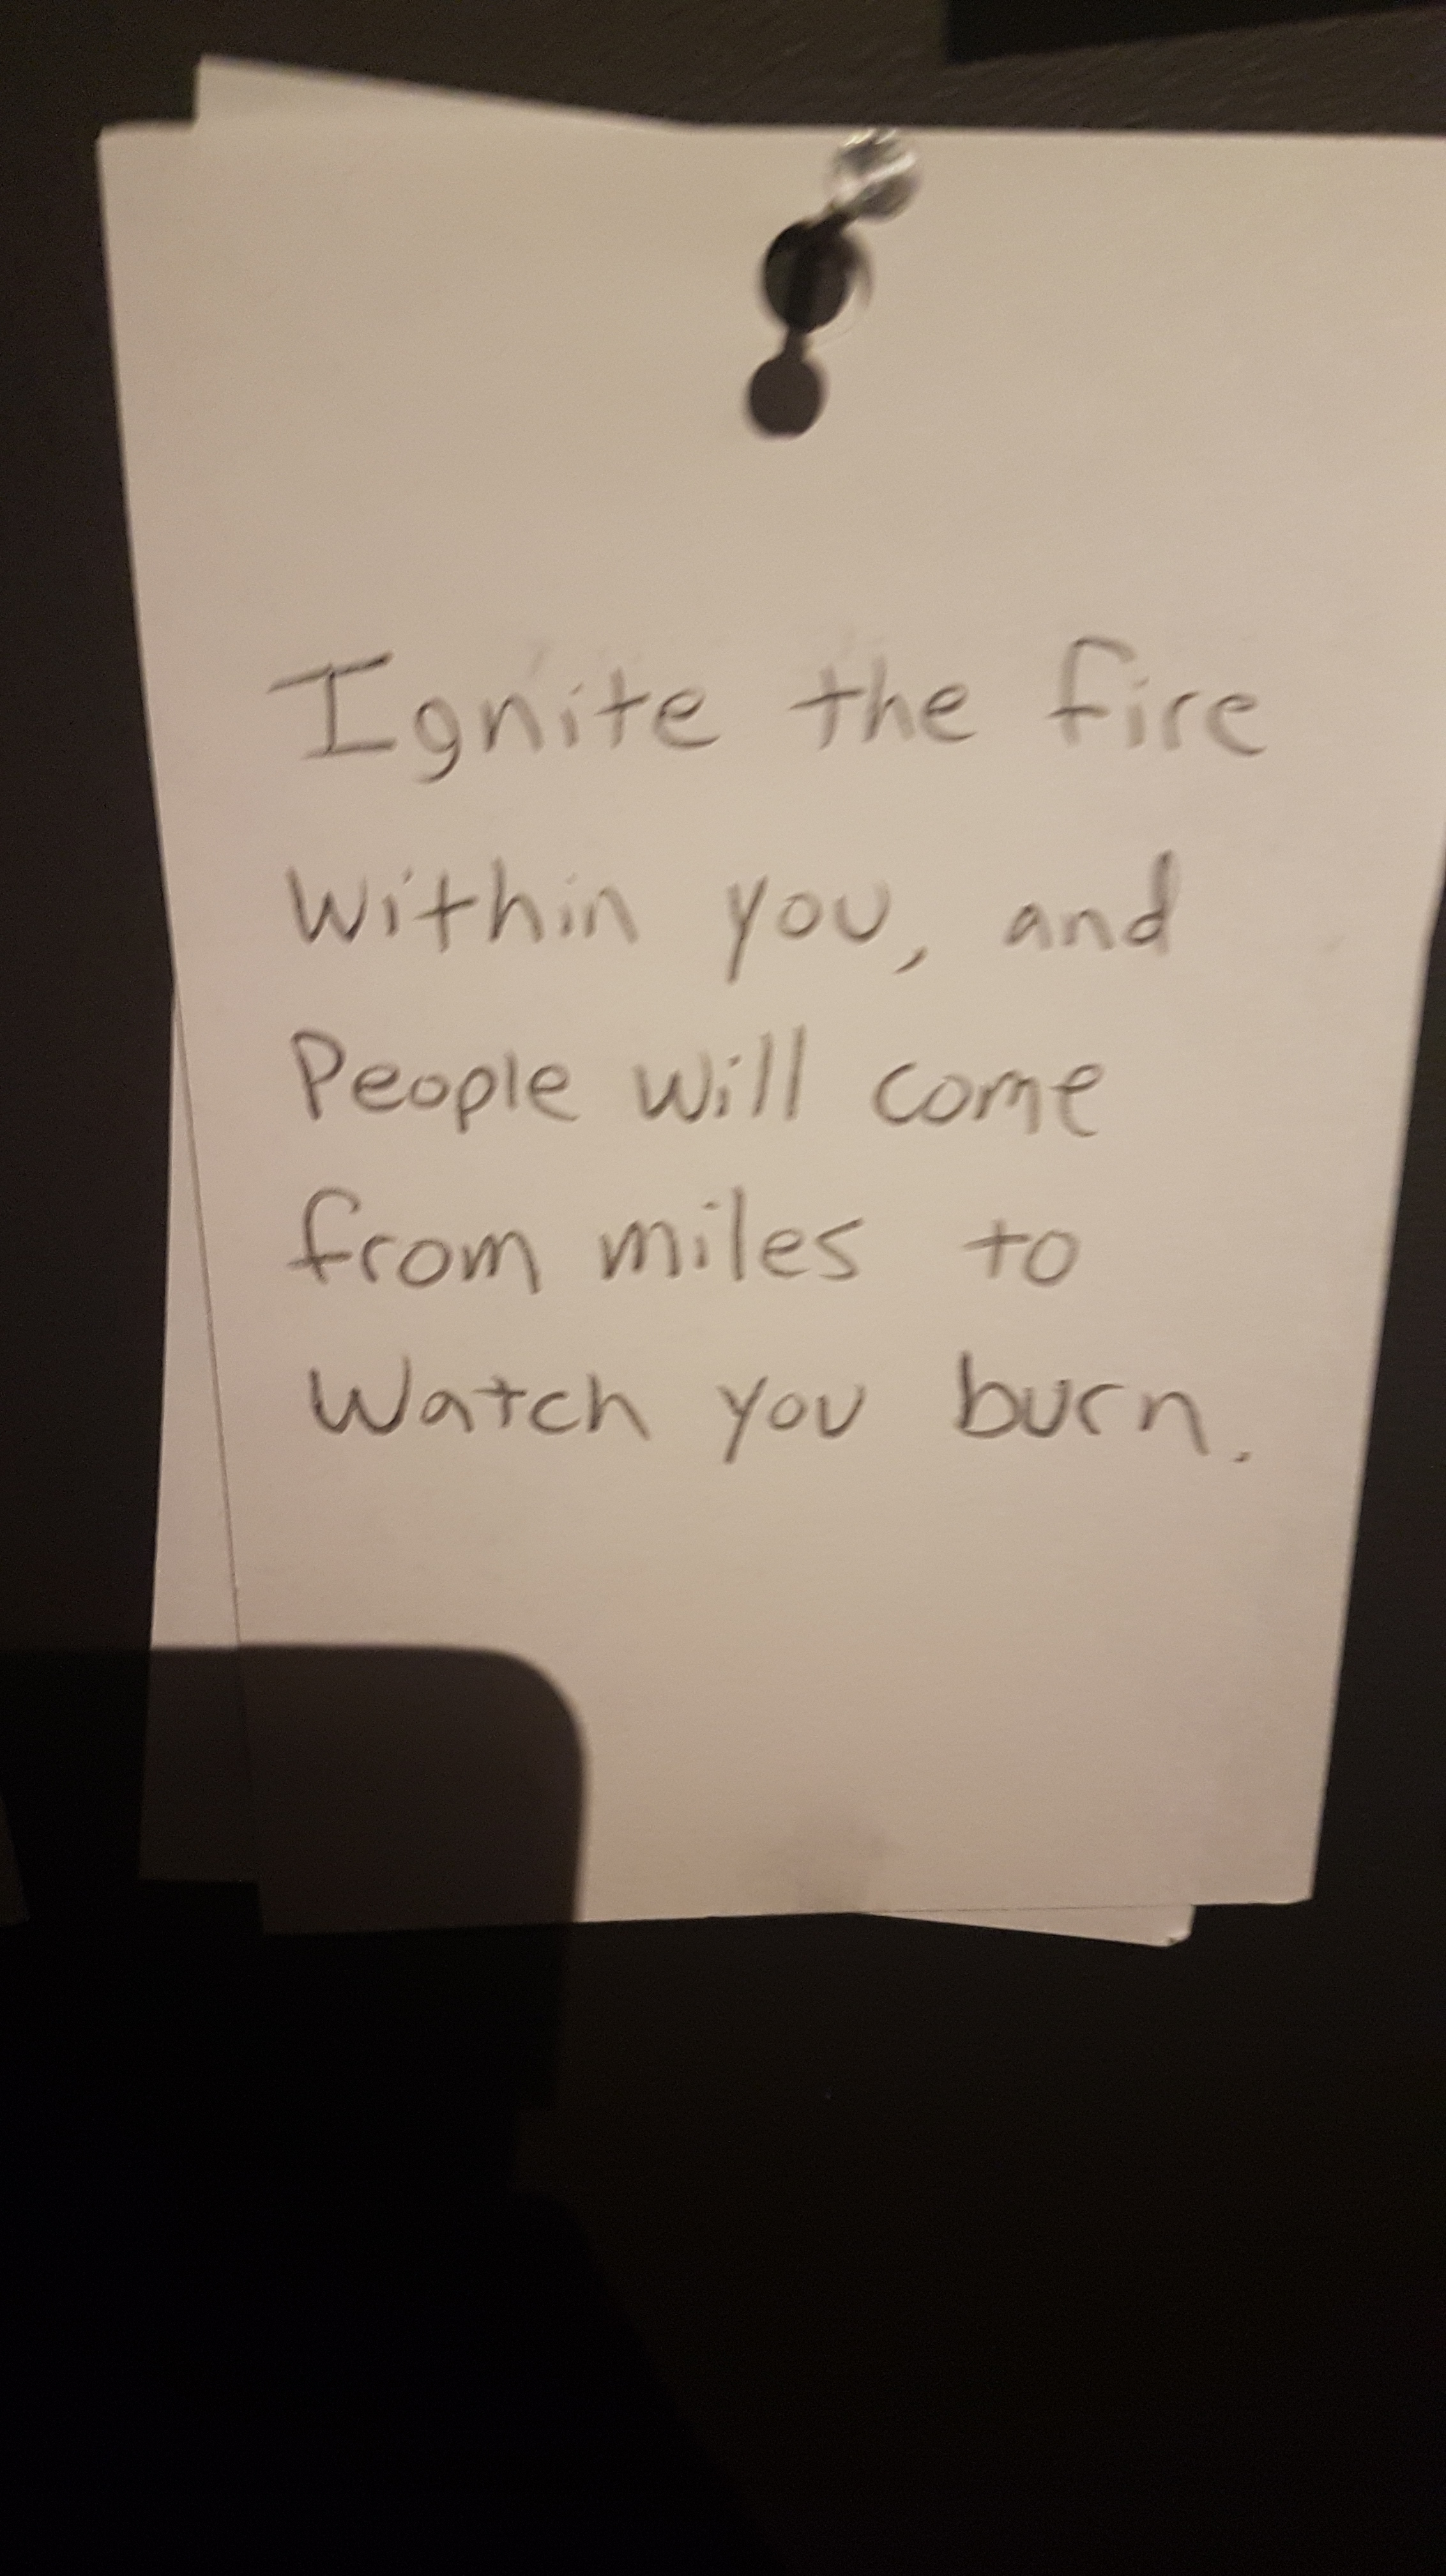 Ignite the fire
within you, and
People will come
from miles to
Watch you burn.